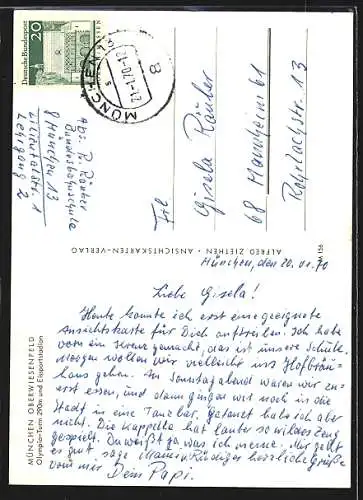 Deutsche Bundespost
20
MÜNCHEN
21.-1.70-12
8
Abs. R. Räuber
Bundesbahnschule
8 München 13
Lilientalstr. 1
Lehrgang 2
Frl.
Gisela Räuber
68 Mannheim 61
13
ALFRED ZIETHEN • ANSICHTSKARTEN-VERLAG
M 156
MÜNCHEN OBERWIESENFELD
Olympia-Turm 290m und Eissportstadion
München, den 20.01.70
Liebe Gisela!
Heute konnte ich erst eine geeignete
Ansichtskarte für Dich auftreiben. Ich habe
vorn ein Kreuz gemacht, das ist unsere Schule.
Morgen wollen wir vielleicht ins Hofbräu-
haus gehen. Am Sonntagabend waren wir zu-
erst essen, und dann gingen wir noch in die
Stadt in eine Tanzbar. Getanzt habe ich aber
nicht. Die Kappelle hat lauter so wildes Zeug
gespielt. Du weißt ja, was ich meine. Mir geht
es gut. sage Mami u. Rüdiger herzliche Grüße
von mir Dein Papi.